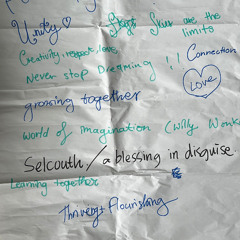 Unity
Skies are the
limits
Creativity, respect, love
Connection
Never stop Dreaming !!
Love
growing together
world of imagination (Willy Wonka
Selcouth / a blessing in disguise.
Learning together
Thriving + Flourishing